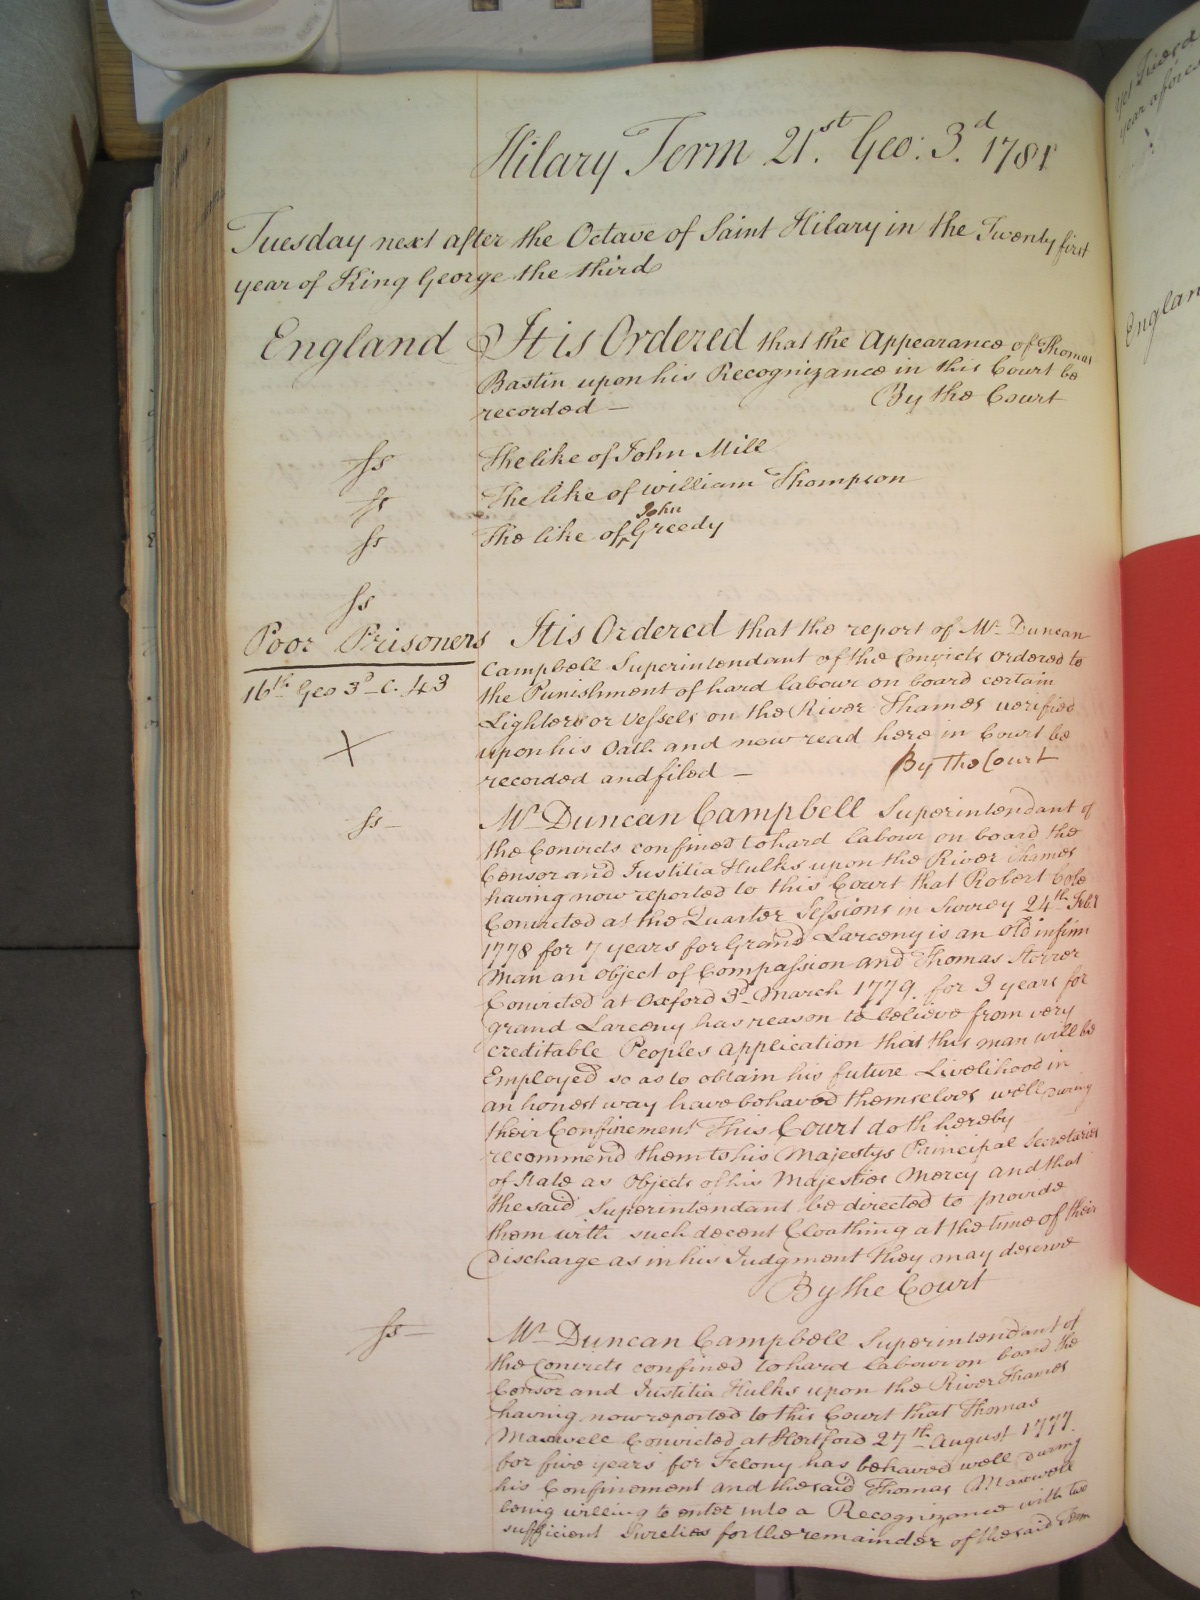 Hilary Term 21.st Geo: 3.d 1781
Tuesday next after the Octave of Saint Hilary in the Twenty first
year of King George the third
England It is Ordered that the Appearance of Thomas
Bastin upon his Recognizance in this Court be
recorded — By the Court
ss The like of John Mill
ss The like of William Thompson
ss The like of John Greedy
ss
Poor Prisoners It is Ordered that the report of Mr. Duncan
Campbell Superintendant of the Convicts Ordered to
16th Geo 3d - C. 43 the Punishment of hard labour on board certain
Lighters or Vessels on the River Thames verified
X upon his Oath and now read here in Court be
recorded and filed — By the Court
ss— Mr. Duncan Campbell Superintendant of
the Convicts confined to hard labour on board the
Censor and Justitia Hulks upon the River Thames
having now reported to this Court that Robert Cole
Convicted at the Quarter Sessions in Surrey 24th
1778 for 7 years for Grand Larceny is an old infirm
Man an Object of Compassion and Thomas
Convicted at Oxford 3d March 1779. for 3 years for
grand Larceny has reason to believe from very
creditable Peoples Application that this man will be
Employed so as to obtain his future Livelihood in
an honest way have behaved themselves well during
their Confinement This Court doth hereby
recommend them to his Majestys Principal Secretaries
of State as Objects of his Majesties Mercy and that
the said Superintendant be directed to provide
them with such decent Cloathing at the time of their
Discharge as in his Judgment they may deserve
By the Court
ss— Mr. Duncan Campbell Superintendant of
the Convicts confined to hard labour on board the
Censor and Justitia Hulks upon the River Thames
having now reported to this Court that Thomas
Maxwell Convicted at Hertford 27th August 1777.
for five years for Felony has behaved well during
his Confinement and the said Thomas Maxwell
being willing to enter into a Recognizance with two
sufficient Sureties for the remainder of the said Term
Englan